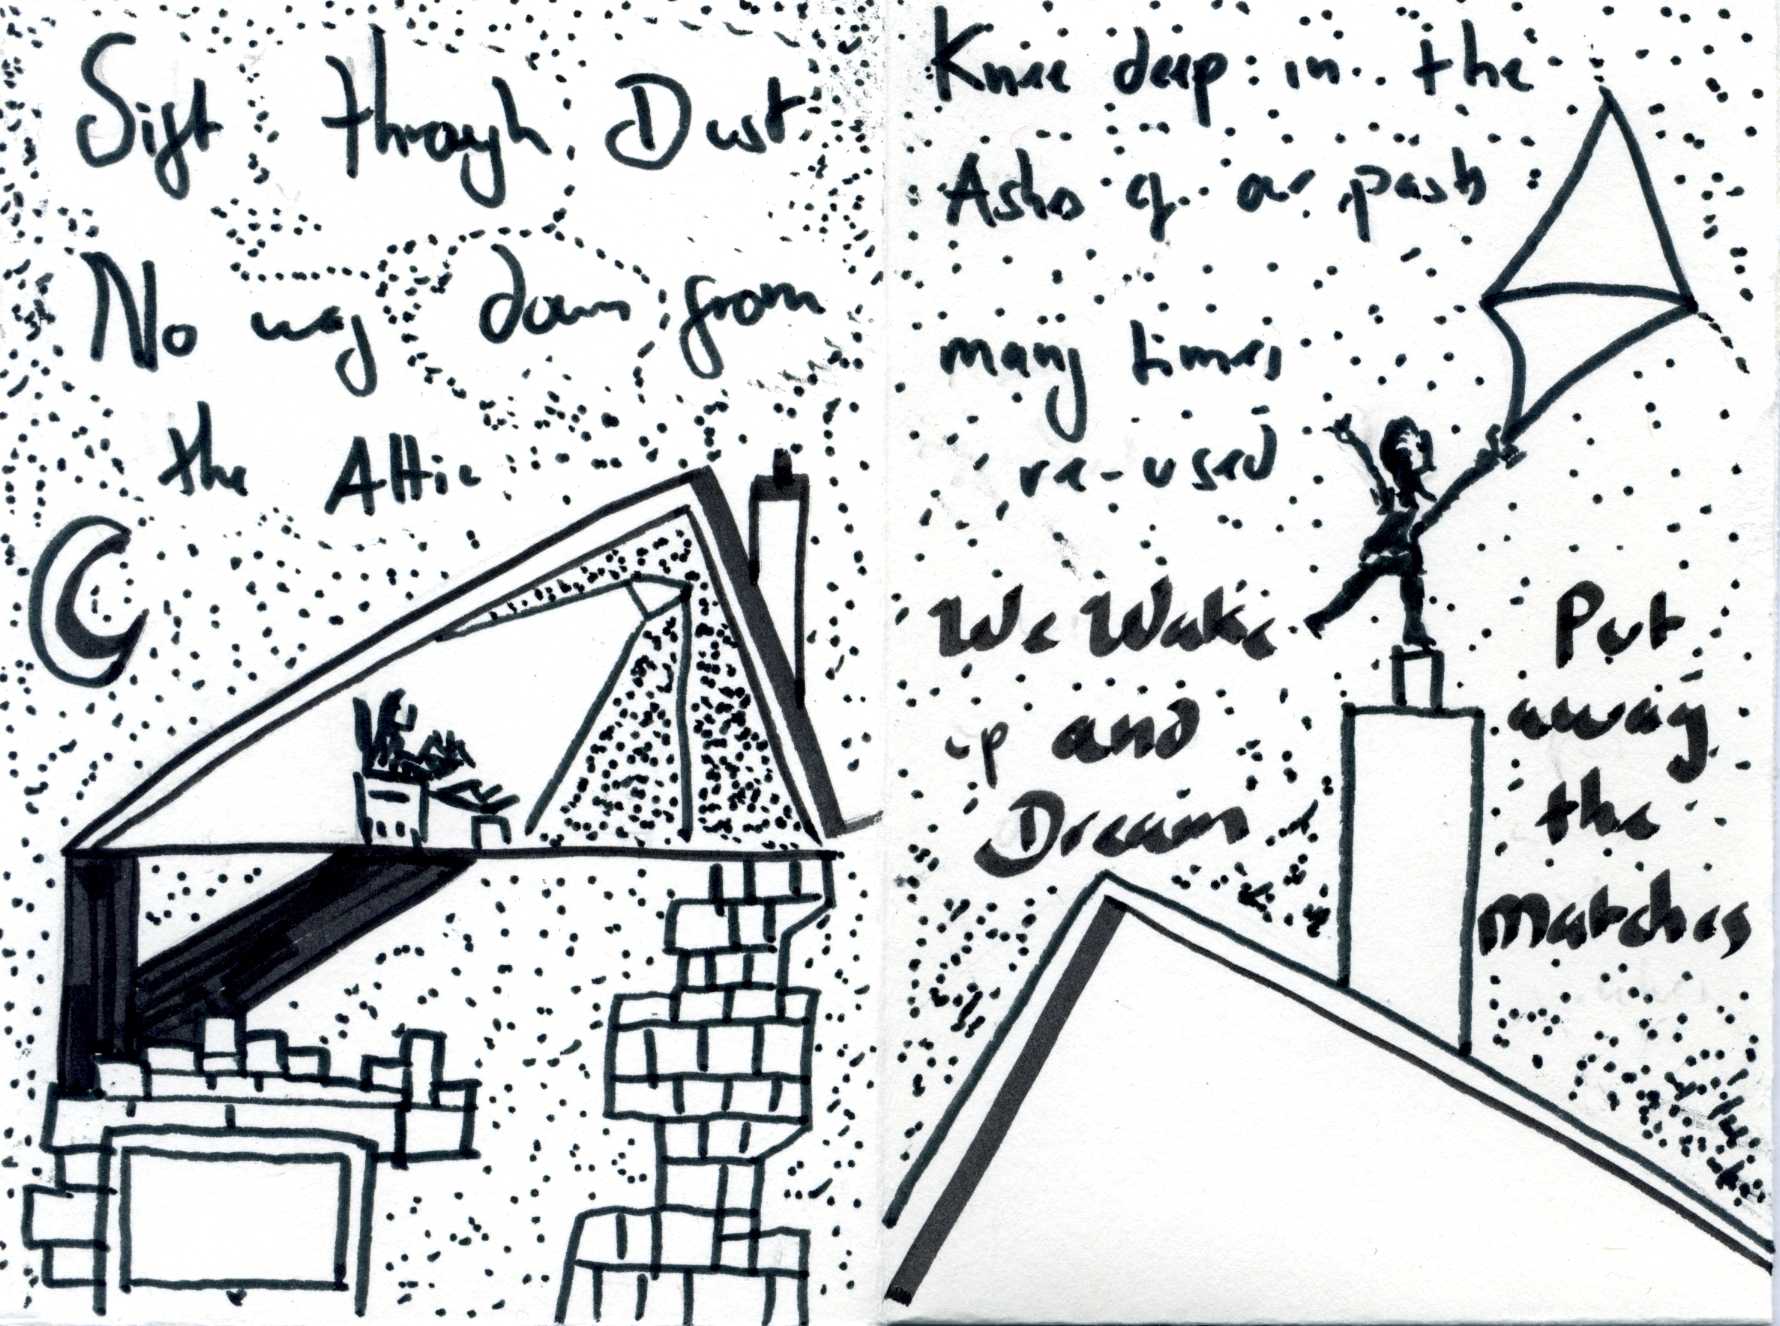 Sift through Dust
No way down from
the Attic
Knee deep in the
Ashes of our pasts
many times
re-used
We Wake
up and
Dream
Put
away
the
matches